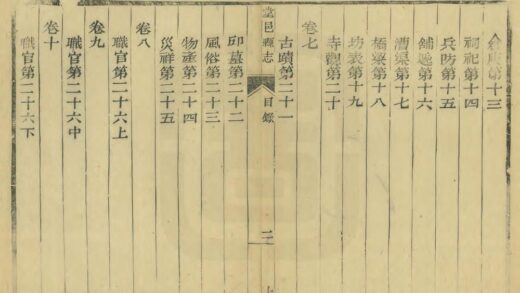 第十三
祠祀第十四
兵防第十五
舖遞第十六
漕渠第十七
橋梁第十八
坊表第十九
寺觀第二十
卷七
古蹟第二十一
堂邑縣志 目錄 二
邱墓第二十二
風俗第二十三
物產第二十四
災祥第二十五
卷八
職官第二十六上
卷九
職官第二十六中
卷十
職官第二十六下